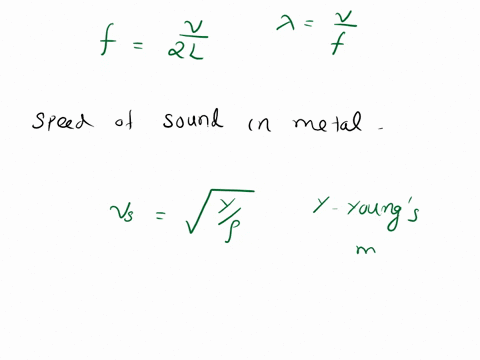 f = v/2L    λ = v/f
Speed of sound in metal.
vs = √(Y/ρ)    Y - Young's
m